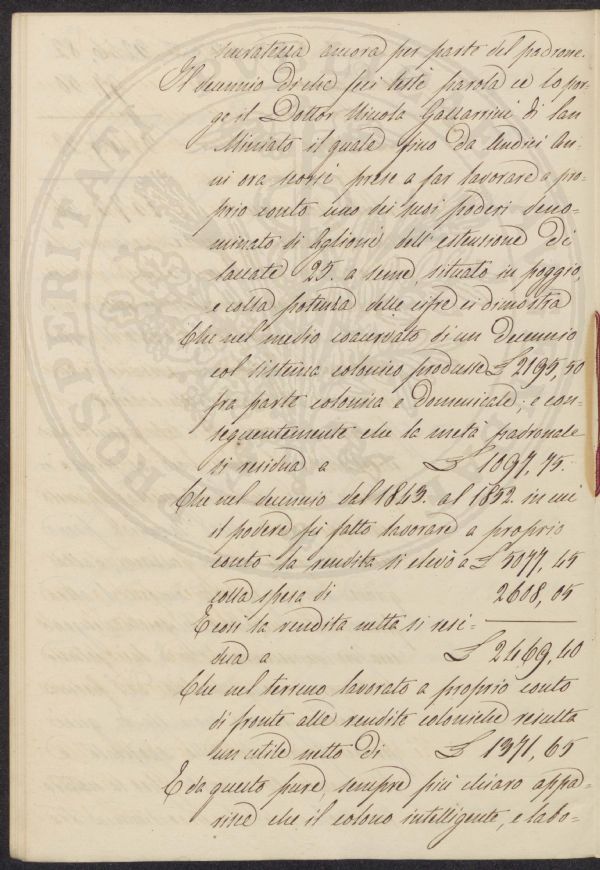 curatezza ancora per parte del padrone.
Il decennio di che feci testè parola ce lo por-
ge il Dottor Nicola Gazzarrini di San
Miniato il quale fino da Undici An-
ni ora scorsi prese a far lavorare a pro-
prio conto uno dei suoi poderi deno-
minato di Aglioni dell'estensione di
saccate 25. a seme, situato in poggio,
e colla potenza delle cifre ci dimostra
Che nel medio coacervato di un Decennio
col sistema colonico produsse £ 2195,50
fra parte colonica e Domenicale; e con-
seguentemente che la metà padronale
si residua a £ 1097,75.
Che nel decennio dal 1843. al 1852. in cui
il podere fu fatto lavorare a proprio
conto la rendita si elevò a £ 5077,45
colla spesa di 2608,05
E così la rendita netta si resi-
dua a £ 2469,40
Che nel terreno lavorato a proprio conto
di fronte alle rendite coloniche resulta
un utile netto di £ 1371,65
E da questo pure, sempre più chiaro appa-
risce che il colono intelligente, e labo-
PROSPERITATI